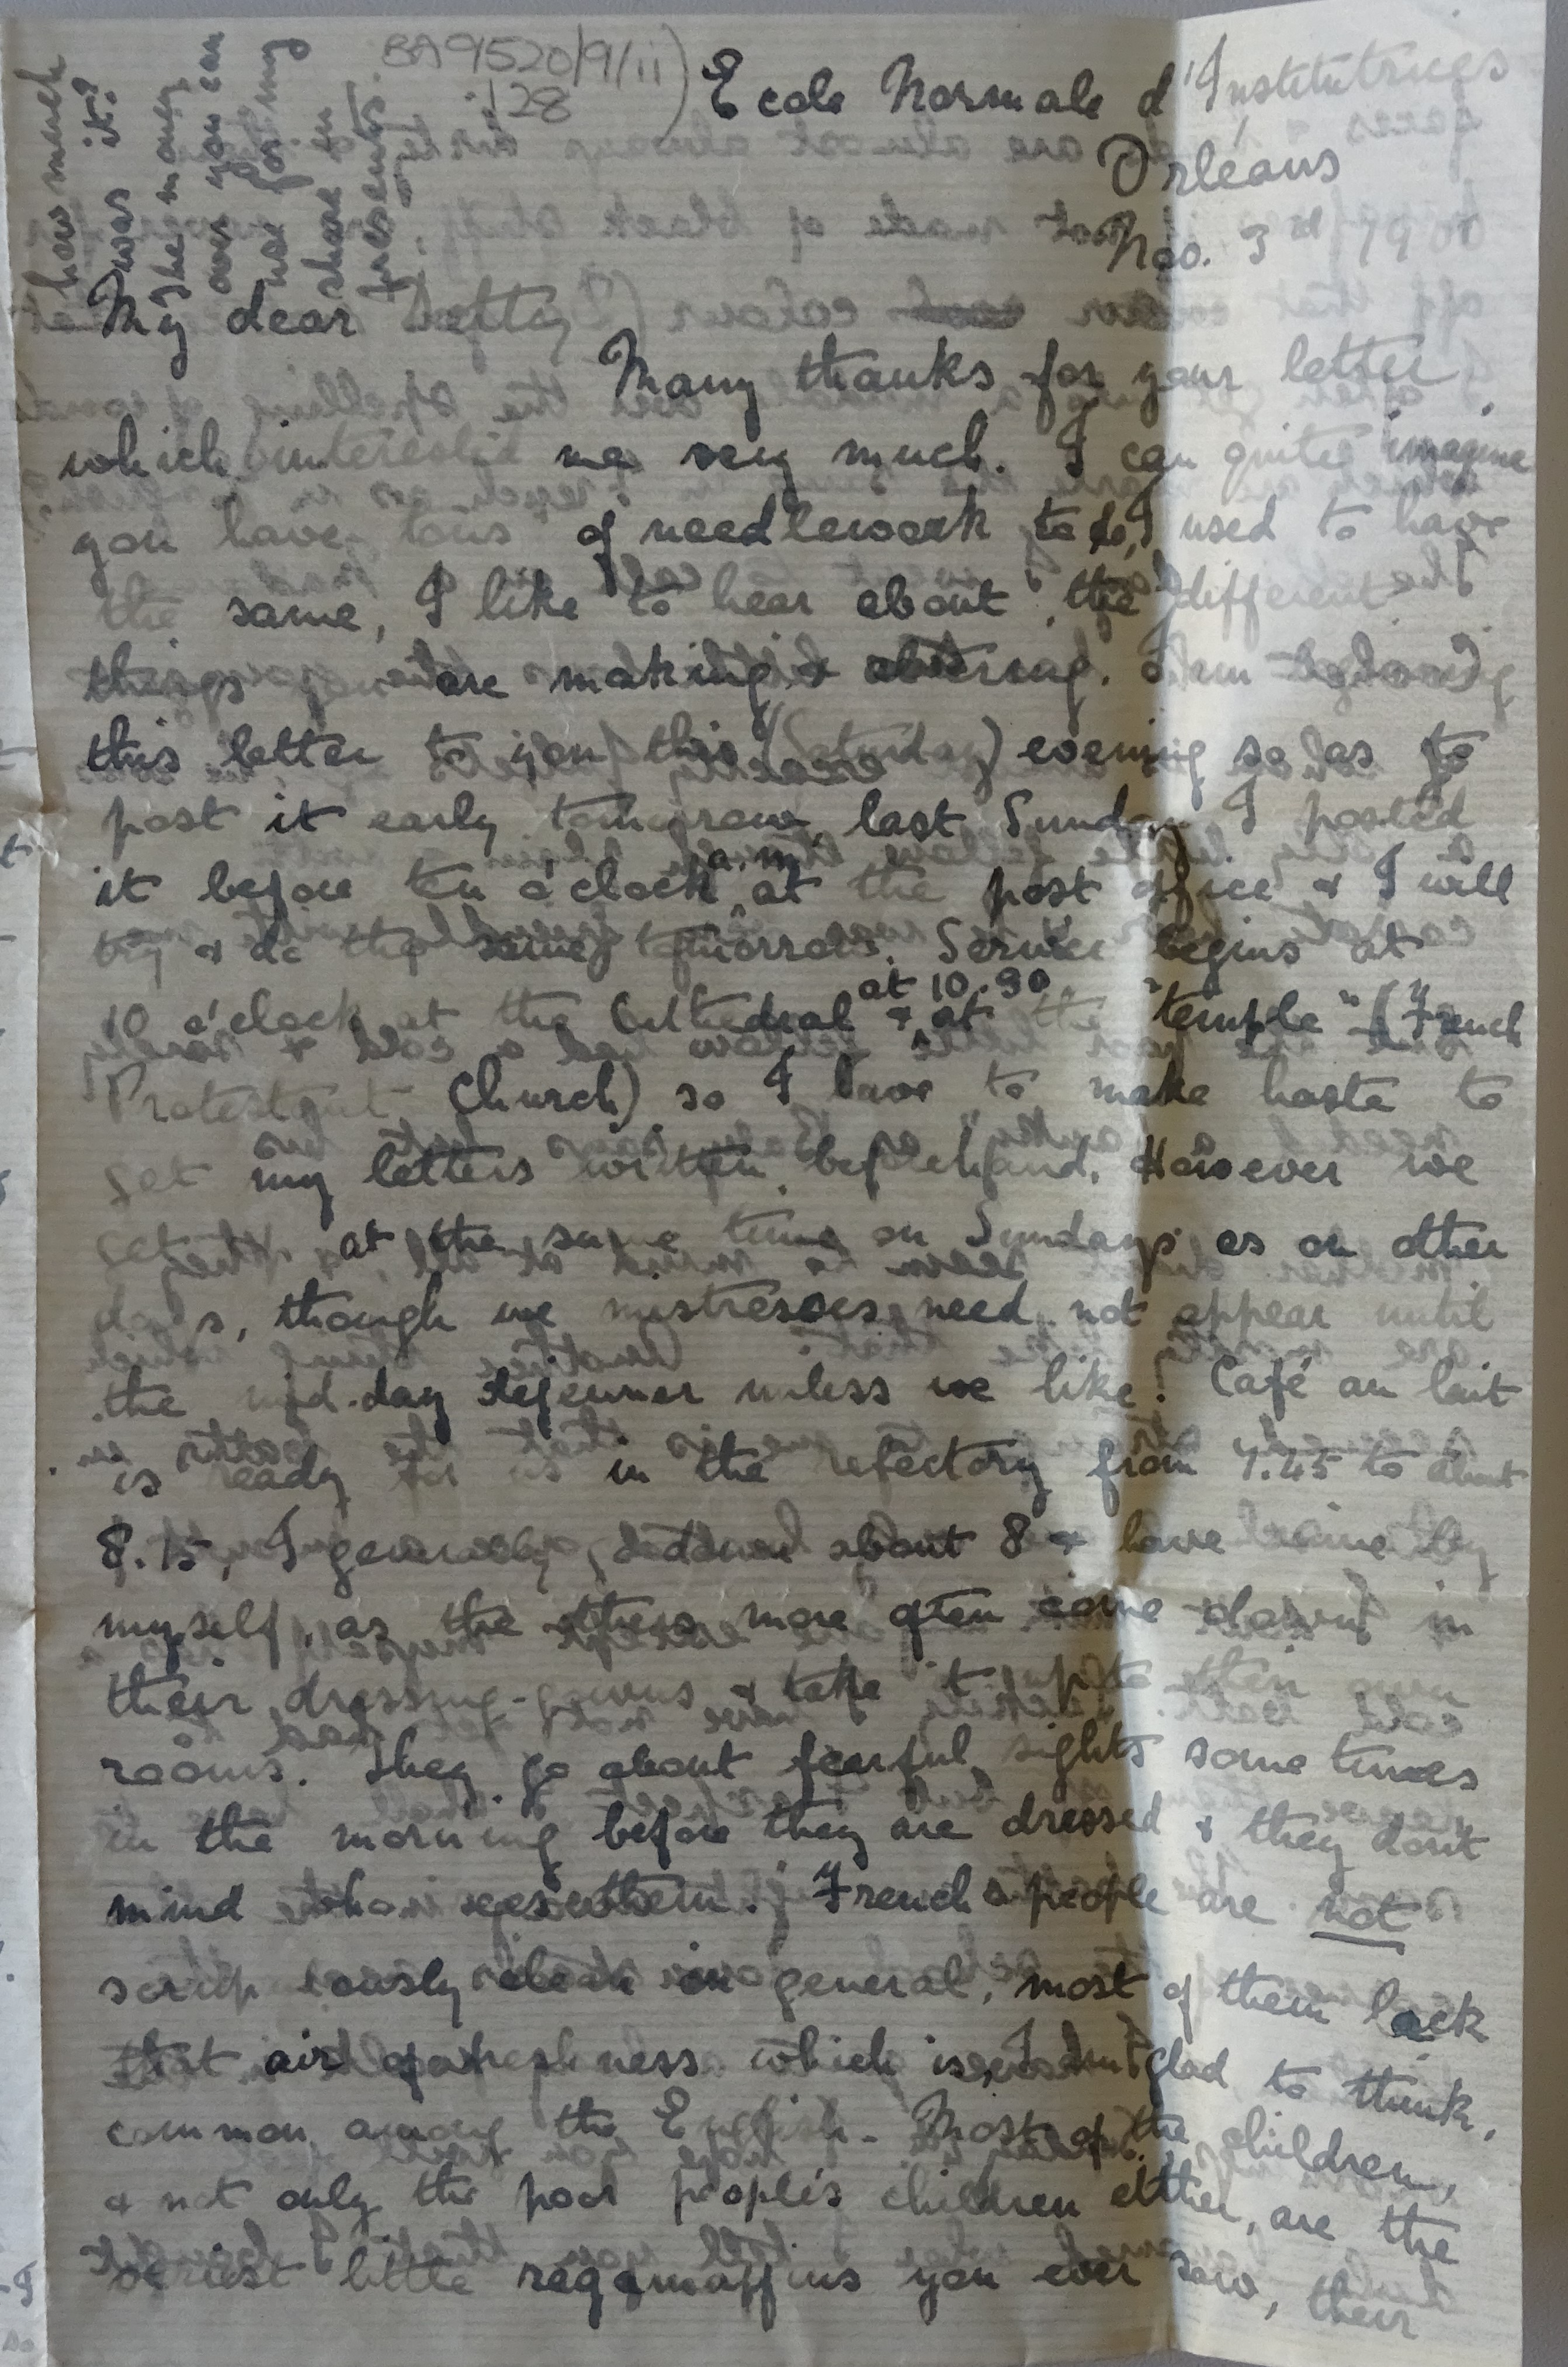 BA9520/9/ii)
128
how much
was it?
The money
over you can
use for my
share in
presents.
Ecole Normale d'Institutrices
Orleans
Nov. 3rd
My dear
Many thanks for your letter
which interested me very much. I can quite imagine
you have tons of needlework to do, I used to have
the same, I like to hear about the different
things you are making & altering. I am
this letter to you this (Saturday) evening so as to
post it early tomorrow, last Sunday I posted
it before ten o'clock a.m. at the post office & I will
try & do the same tomorrow. Service begins at
10 o'clock at the Cathedral & at 10.30 at the "temple" (French
Protestant Church) so I have to make haste to
get my letters written beforehand. However we
get at the same time on Sundays as on other
days, though we mistresses need not appear until
the mid-day dejeuner unless we like. Café au lait
is ready for us in the refectory from 7.45 to about
8.15, I generally go down about 8 & have mine by
myself, as the others more often come down in
their dressing-gowns & take it up to their own
rooms. They go about fearful sights sometimes
in the morning before they are dressed & they don't
mind who sees them. French people are not
scrupulously clean in general, most of them lack
that air of freshness which is, I am glad to think,
common among the English. Most of the children,
& not only the poor people's children either, are the
veriest little raggamuffins you ever saw, their